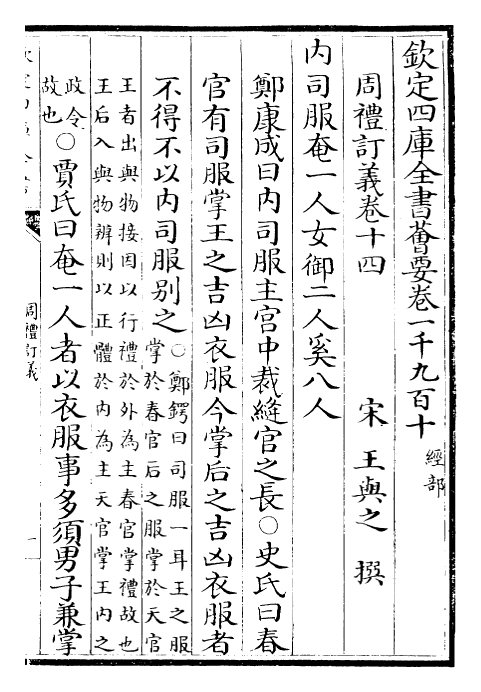 欽定四庫全書薈要卷一千九百十
經部
周禮訂義卷十四
宋 王與之 撰
内司服奄一人女御二人奚八人
鄭康成曰内司服主宫中裁縫官之長○史氏曰春
官有司服掌王之吉凶衣服今掌后之吉凶衣服者
不得不以内司服别之○鄭鍔曰司服一耳王之服
掌於春官后之服掌於天官
王者出與物接因以行禮於外為主春官掌禮故也
王后入與物辨則以正體於内為主天官掌王内之
政令
故也○賈氏曰奄一人者以衣服事多須男子兼掌
周禮訂義
一